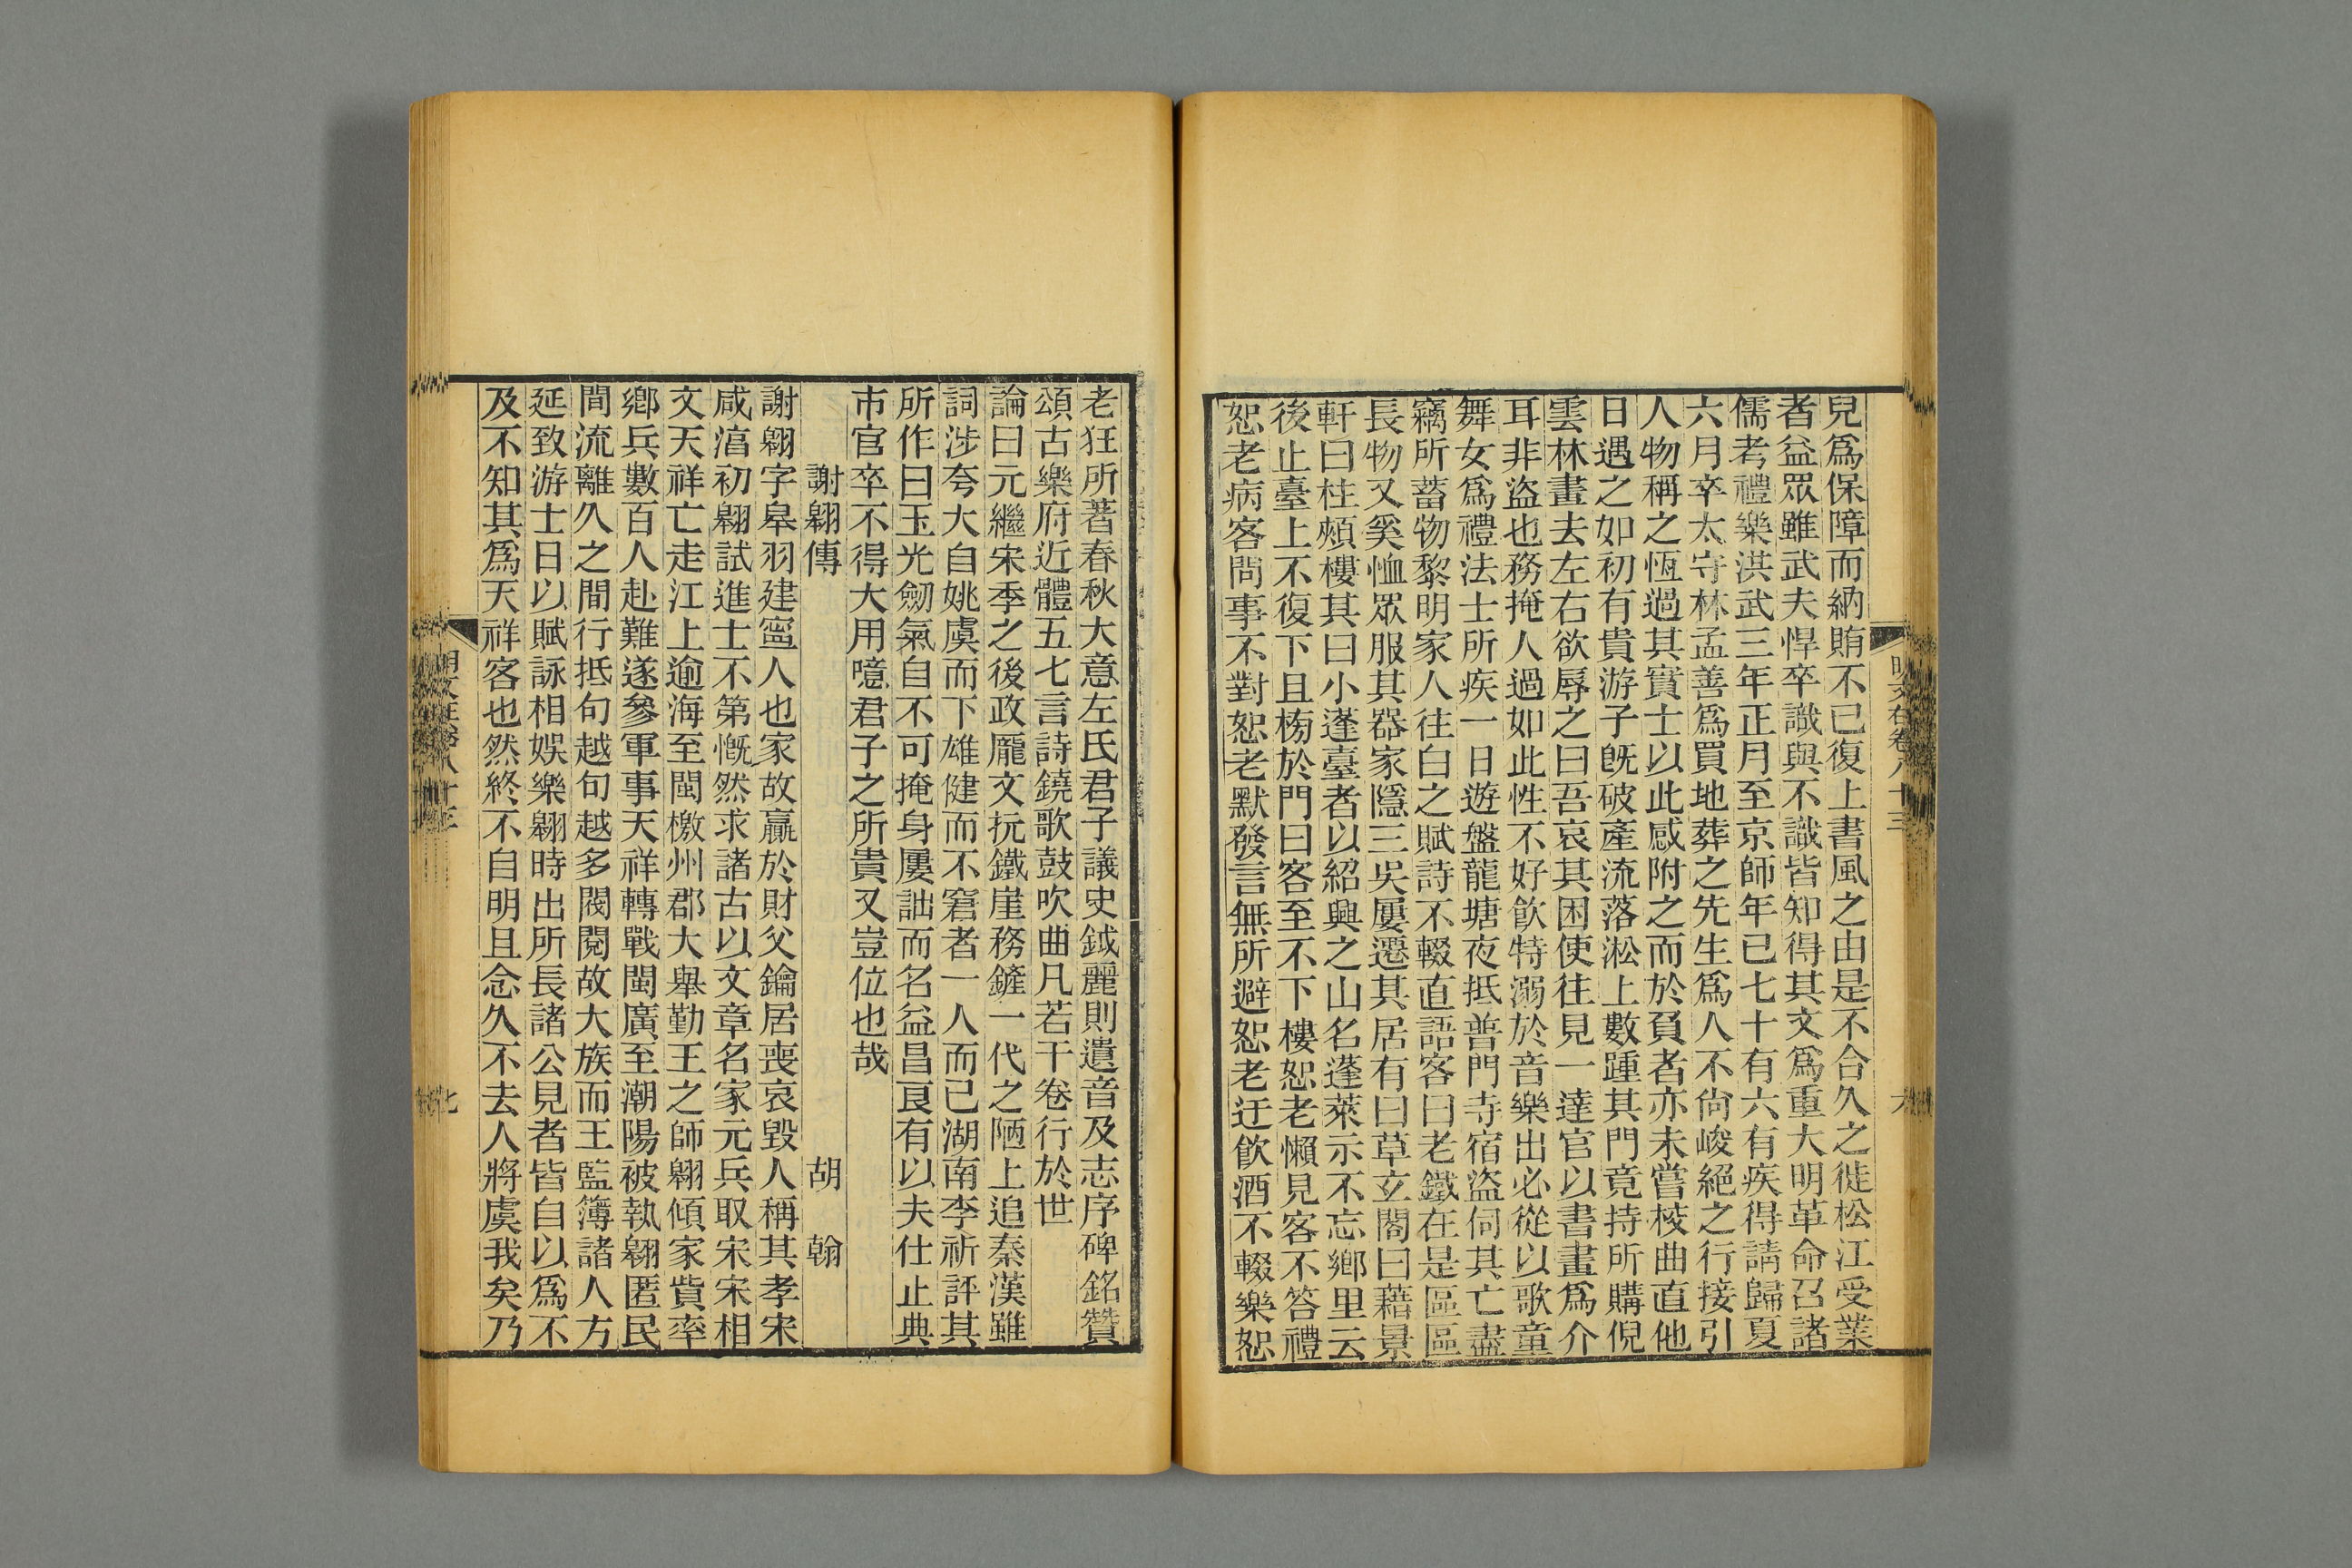 兒爲保障而納賄不已復上書風之由是不合久之徙松江受業
者益眾雖武夫悍卒識與不識皆知得其文爲重大明革命召諸
儒考禮樂洪武三年正月至京師年已七十有六有疾得請歸夏
六月卒太守林孟善爲買地葬之先生爲人不尙峻絕之行接引
人物稱之恆過其實士以此感附之而於負者亦未嘗校曲直他
日遇之如初有貴游子旣破產流落淞上數踵其門竟持所購倪
雲林畫去左右欲辱之曰吾哀其困使往見一達官以書畫爲介
耳非盜也務掩人過如此性不好飮特溺於音樂出必從以歌童
舞女爲禮法士所疾一日遊盤龍塘夜抵普門寺宿盜伺其亡盡
竊所蓄物黎明家人往白之賦詩不輟直語客曰老鐵在是區區
長物又奚恤眾服其器家隱三吳屢遷其居有曰草玄閣曰藉景
軒曰柱頰樓其曰小蓬臺者以紹興之山名蓬萊示不忘鄉里云
後止臺上不復下且榜於門曰客至不下樓恕老懶見客不答禮
恕老病客問事不對恕老默發言無所避恕老迂飮酒不輟樂恕
明文在卷八十三
六
老狂所著春秋大意左氏君子議史鉞麗則遺音及志序碑銘贊
頌古樂府近體五七言詩鐃歌鼓吹曲凡若干卷行於世
論曰元繼宋季之後政龐文抏鐵崖務鏟一代之陋上追秦漢雖
詞涉夸大自姚虞而下雄健而不窘者一人而已湖南李祈評其
所作曰玉光劒氣自不可掩身屢詘而名益昌良有以夫仕止典
市官卒不得大用噫君子之所貴又豈位也哉
謝翱傳 胡翰
謝翱字皋羽建寍人也家故贏於財父鑰居喪哀毀人稱其孝宋
咸湻初翱試進士不第慨然求諸古以文章名家元兵取宋宋相
文天祥亡走江上逾海至閩檄州郡大舉勤王之師翱傾家貲率
鄉兵數百人赴難遂參軍事天祥轉戰閩廣至潮陽被執翱匿民
間流離久之間行抵句越句越多閥閱故大族而王監簿諸人方
延致游士日以賦詠相娛樂翱時出所長諸公見者皆自以爲不
及不知其爲天祥客也然終不自明且念久不去人將虞我矣乃
明文在卷八十三
七